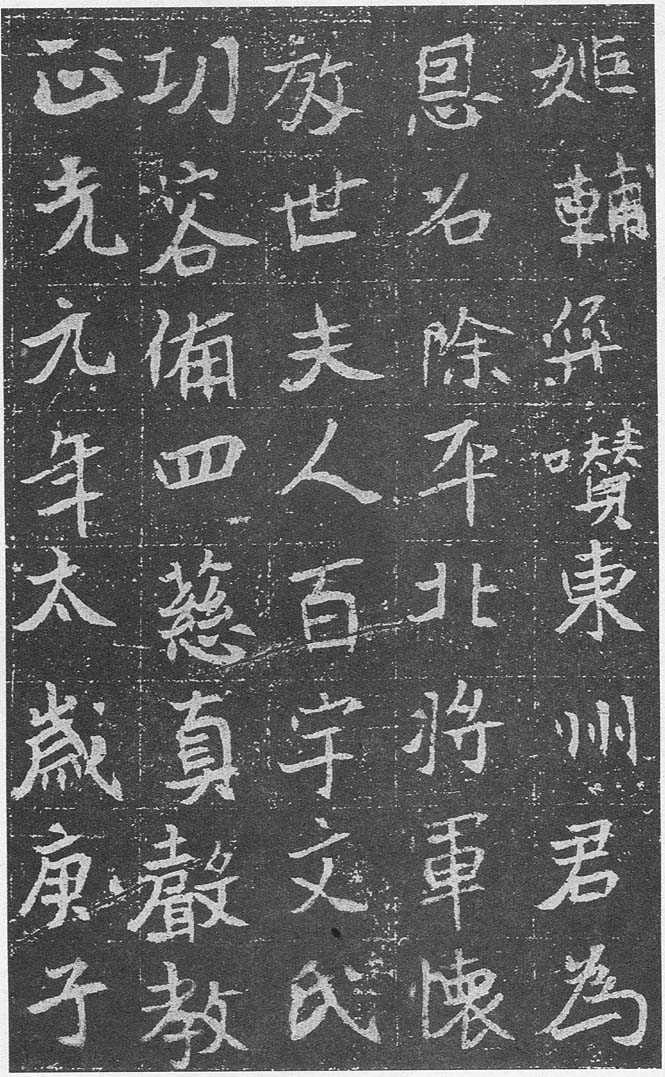 姬輔東州君為
恩名除平北將軍懷
世夫人百宇文氏
功容備四慈真聲教
正光元年太歲庚子